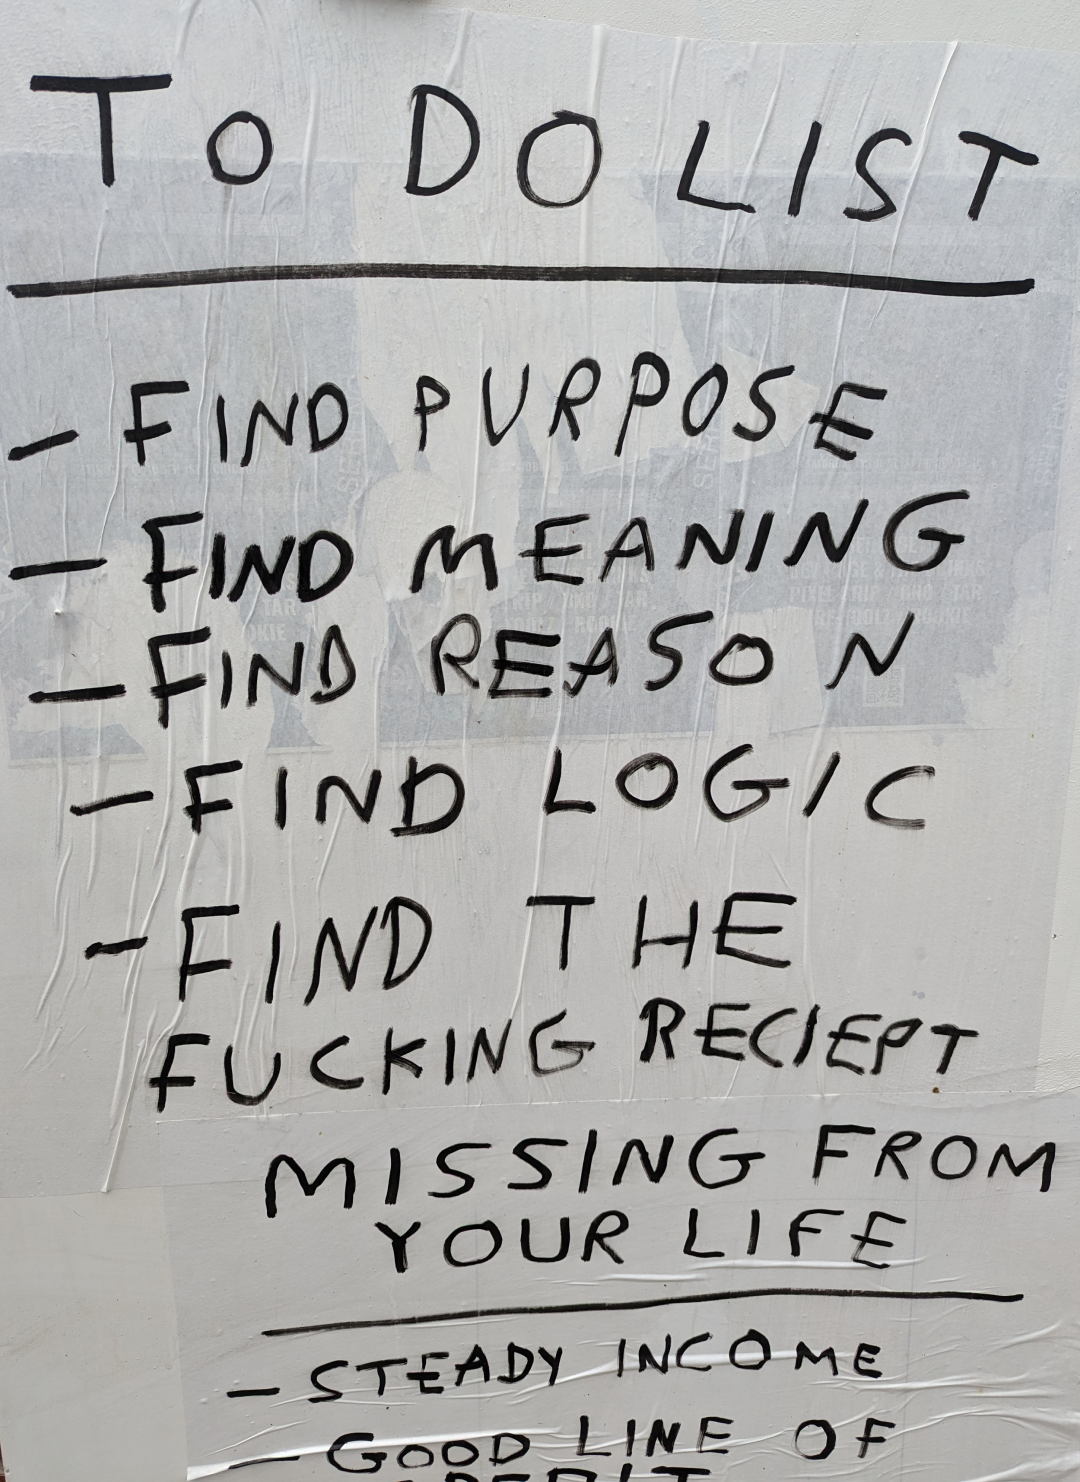 TO DO LIST
- FIND PURPOSE
- FIND MEANING
- FIND REASON
- FIND LOGIC
- FIND THE
FUCKING RECIEPT
MISSING FROM
YOUR LIFE
- STEADY INCOME
- GOOD LINE OF